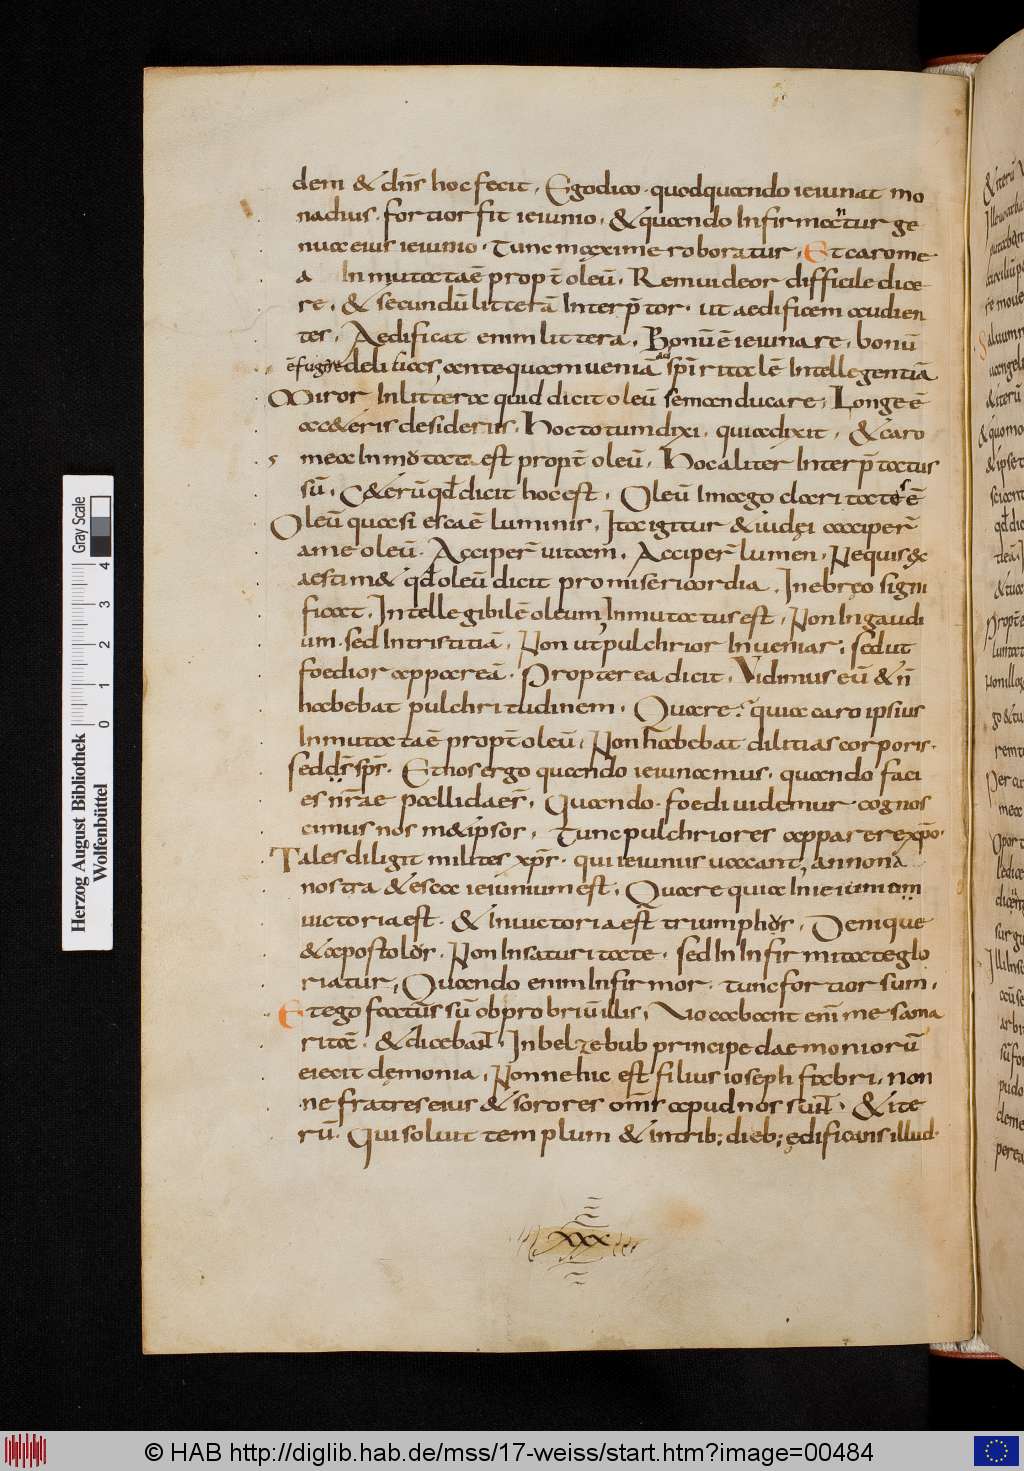 dem & dn̄s hoc fecit. Ego dico. quod quando ieiunat mo
nachus. fortior fit ieiunio. & quando Infirmantur ge
nua eius ieiunio. tunc maxime roboratur. Et caro me
a Inmutata ē prop̄t oleū. Rem uideor difficile dice
re. & secundū litterā Interp̄tor. ut aedificem audien
tes. Aedificat enim littera. Bonū ē ieiunare. bonū
ē fugire delitias. antequam ueniā ad sp̄iritalē Intellegentiā
Miror In littera quid dicit oleū se manducare. Longe ē
a ca&eris desideriis. Hoc totum dixi. quia dixit. & caro
mea Inmotata est prop̄t oleū. Hoc aliter Interp̄tatus
sū. C&erū qđ dicit hoc est. Oleū Imago claritatis ē
Oleū quasi esca ē luminis. Ita igitur & iudęi acciper̄
a me oleū. Acciper̄ uitam. Acciper̄ lumen. Nequis ęc
aestim& qđ oleū dicit pro misericordia. In ebręo signi
ficat. Intellegibilē oleum, Inmutatus est. Non In gaudi
um. sed In tristitiā. Non ut pulchrior Inueniar. sed ut
foedior appareā. Propterea dicit. Vidimus eū & n̄
habebat pulchritudinem. Quare? quia caro ipsius
Inmutata ē prop̄t oleū. Non habebat dilitias corporis.
sed d̄s sp̄s. Et nos ergo quando ieiunamus. quando faci
es nr̄ae pallidae s̄. Quando foedi uidemur cognos
cimus nosm&ipsos. Tunc pulchriores apparere xp̄o.
Tales diligit milites xp̄s. qui ieiunus uacant, annona
nostra & esca ieiunium est. Quare quia In ieiunium
uictoria est. & In uictoria est triumphus. Denique
& apostolus. Non In saturitate. sed In Infirmitate glo
riatur. Quando enim Infirmor. tunc fortior sum.
Et ego factus sū obprobriū illis. Uocabant eni me sama
ritā. & dicebant. In belzebub principe daemoniorū
eiecit dęmonia. Nonne hic est filius ioseph fabri. non
ne fratres eius & sorores om̄s apud nos sunt. & ite
rū. Qui soluit templum & in trib; dieb; ędificans illud.
xxx
Herzog August Bibliothek
Wolfenbüttel
Gray Scale
0 1 2 3 4
© HAB http://diglib.hab.de/mss/17-weiss/start.htm?image=00484